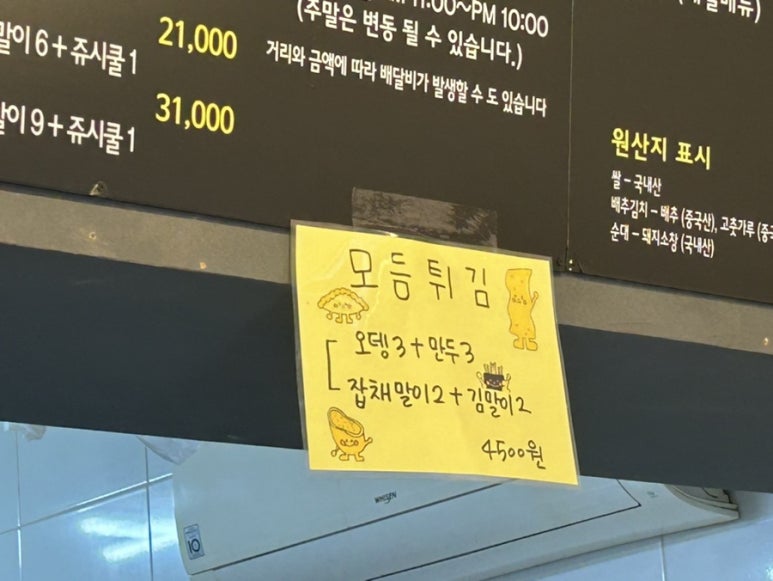 21,000
31,000
6 + 쥬시쿨 1
9 + 쥬시쿨 1
11:00~PM 10:00
(주말은 변동 될 수 있습니다.)
거리와 금액에 따라 배달비가 발생할 수 도 있습니다
원산지 표시
쌀 – 국내산
배추김치 – 배추 (중국산), 고춧가루
순대 – 돼지소창 (국내산)
모듬튀김
오뎅3 + 만두3
잡채말이2 + 김말이2
4500원
WHISEN
10